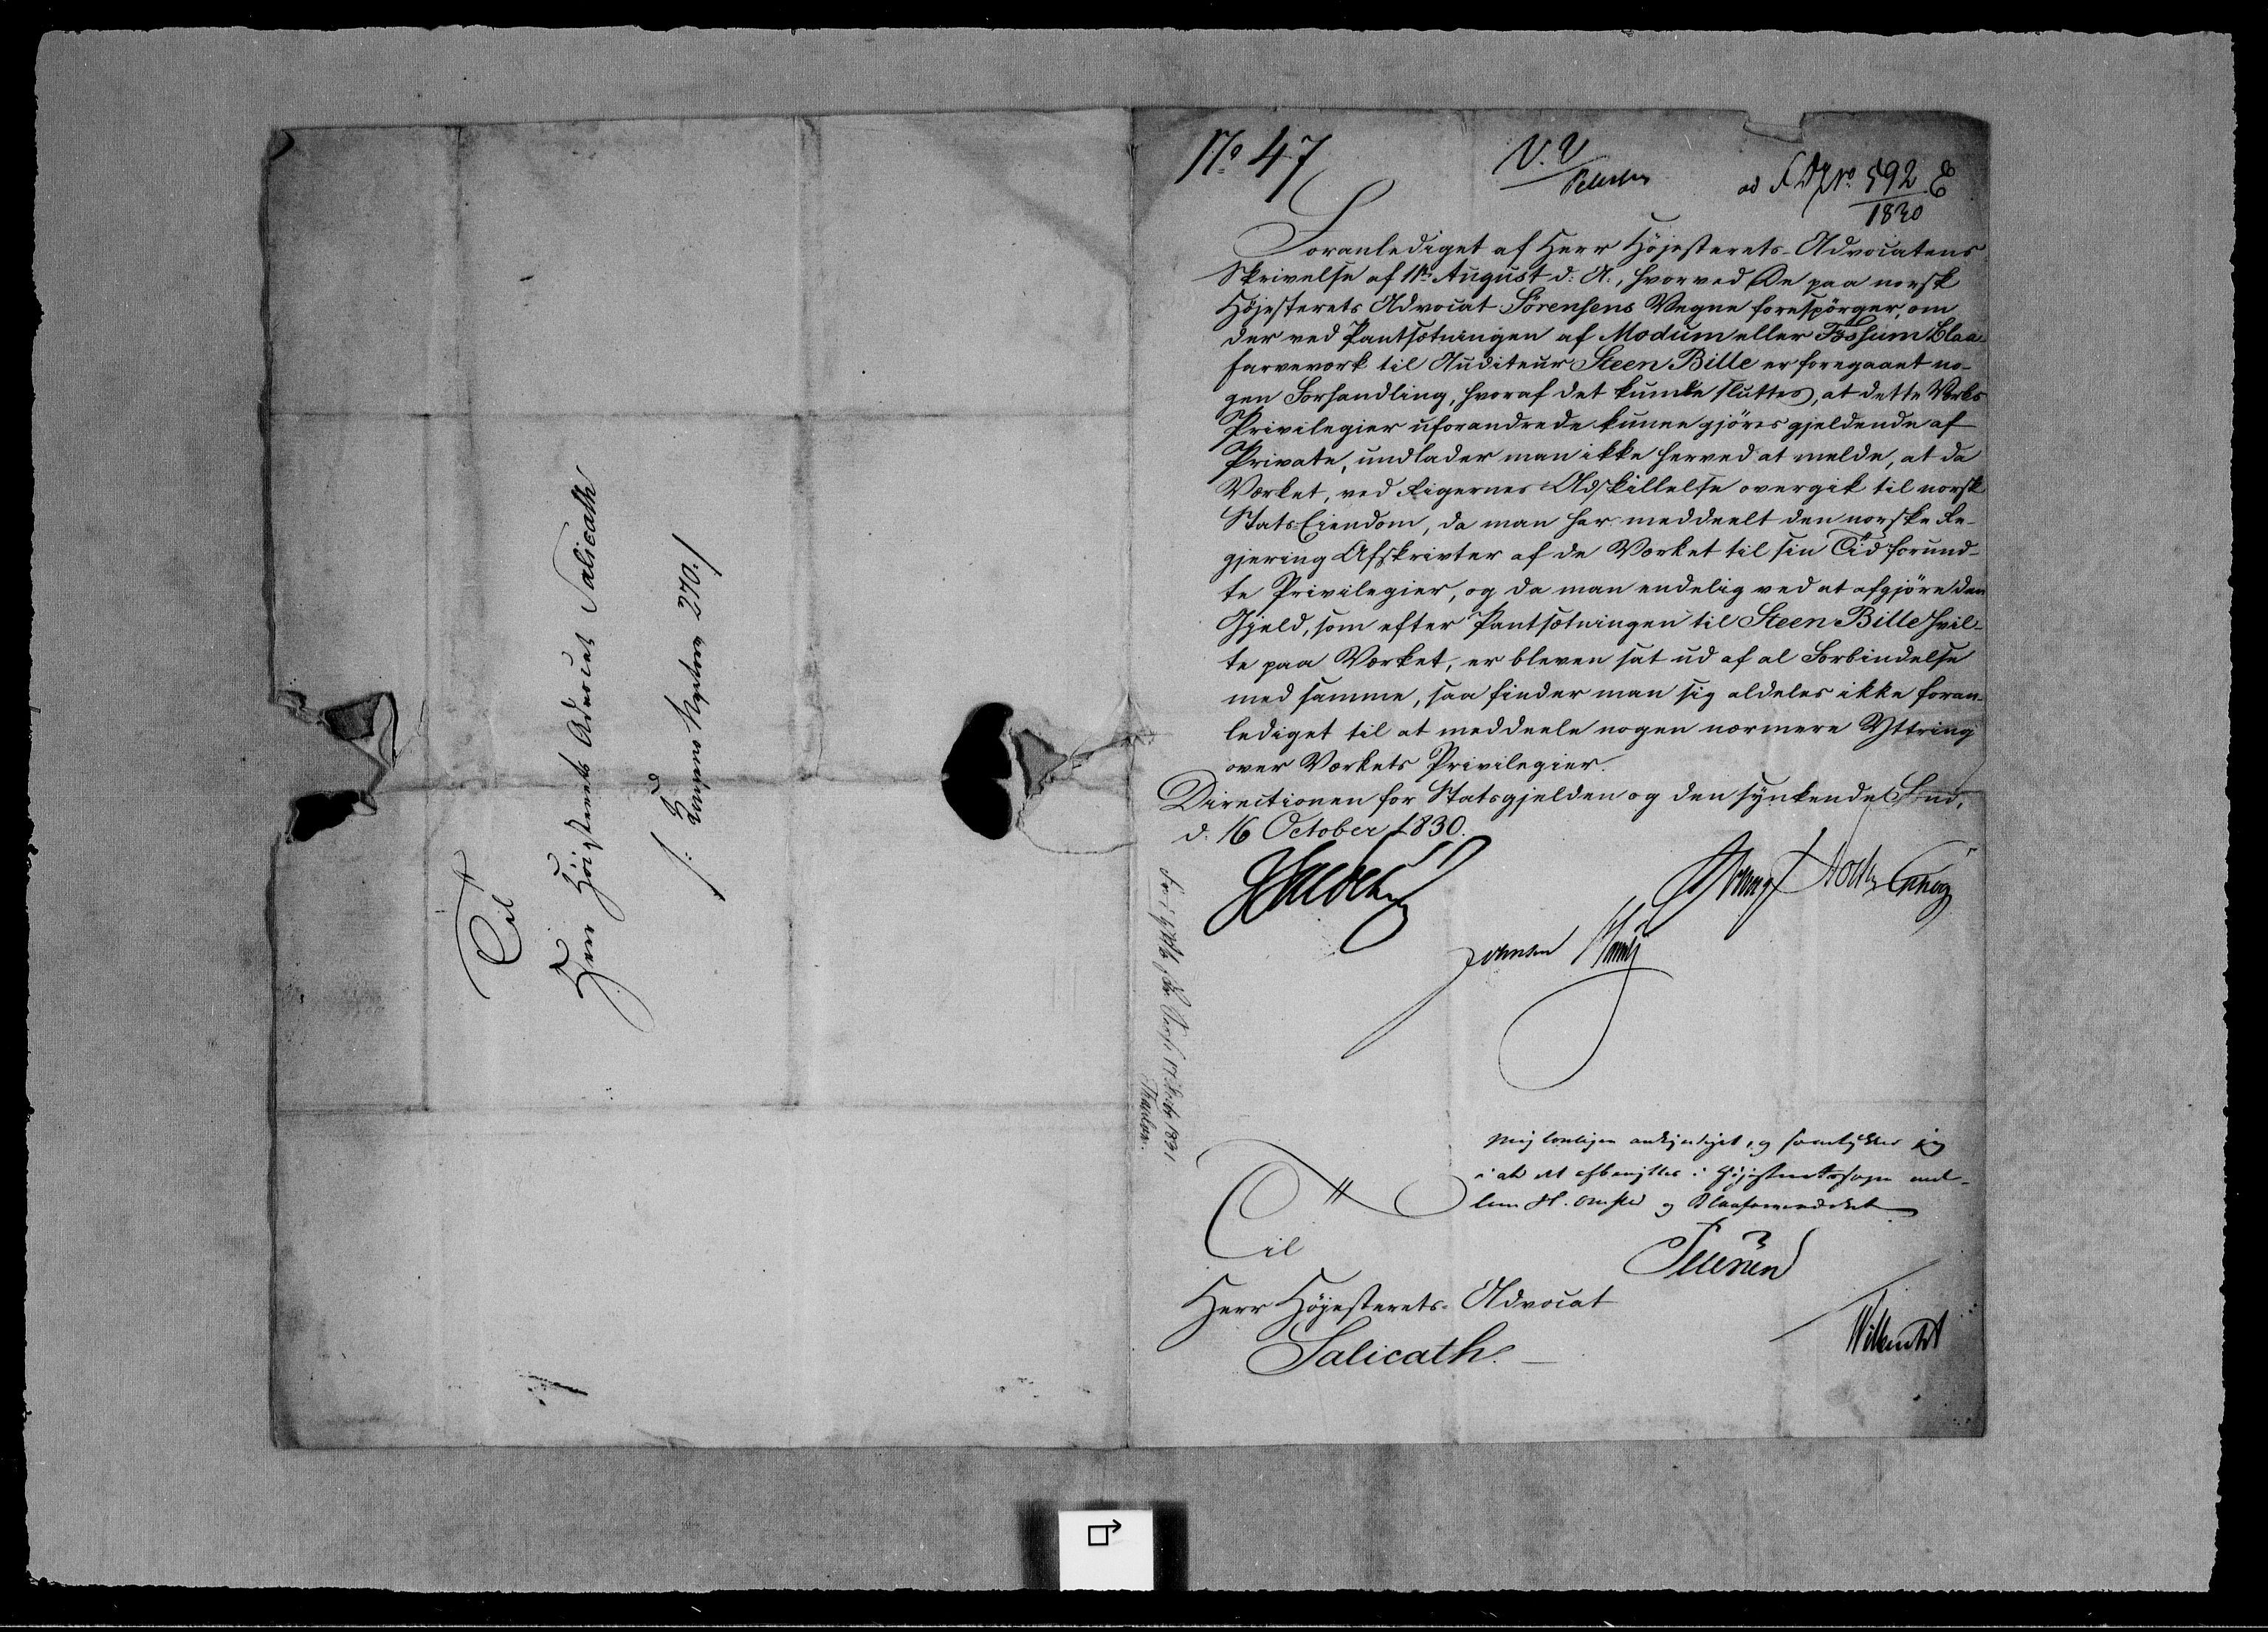 Til
Herr Höiesterets Advocat Salicath
No 47
ad No. 592 E
1830
Foranlediget af Herr Höjesterets-Advocatens
Skrivelse af 11te August d: A:, hvorved De paa norsk
Höjesterets Advocat Sörensens Vegne forespörger, om
der ved Pantsætningen af Modum eller Fossum Blaa
farveværk til Auditeur Steen Bille er foregaaet no-
gen Forhandling, hvoraf det kunde sluttes, at dette Værks
Privilegier uforandrede kunne gjöres gjeldende af
Private, undlader man ikke herved at melde, at da
Værket, ved Rigernes Adskillelse overgik til norsk
Stats-Eiendom, da man har meddeelt den norske Re-
gjering Afskrivter af de Værket til sin Tid forund-
te Privilegier, og da man endelig ved at afgjöre den
Gjeld, som efter Pantsætningen til Steen Bille hvil-
te paa Værket, er bleven sat ud af al Forbindelse
med samme, saa finder man sig aldeles ikke foran-
lediget til at meddeele nogen nærmere Yttring
over Værkets Privilegier.
Directionen for Statsgjelden og den synkende Fond,
d: 16 October 1830.
og samtykker jeg
i at det afbenyttes i Höjesteretssagen mel-
lem og Blaafarveværket
Til
Herr Höjesterets-Advocat
Salicath.